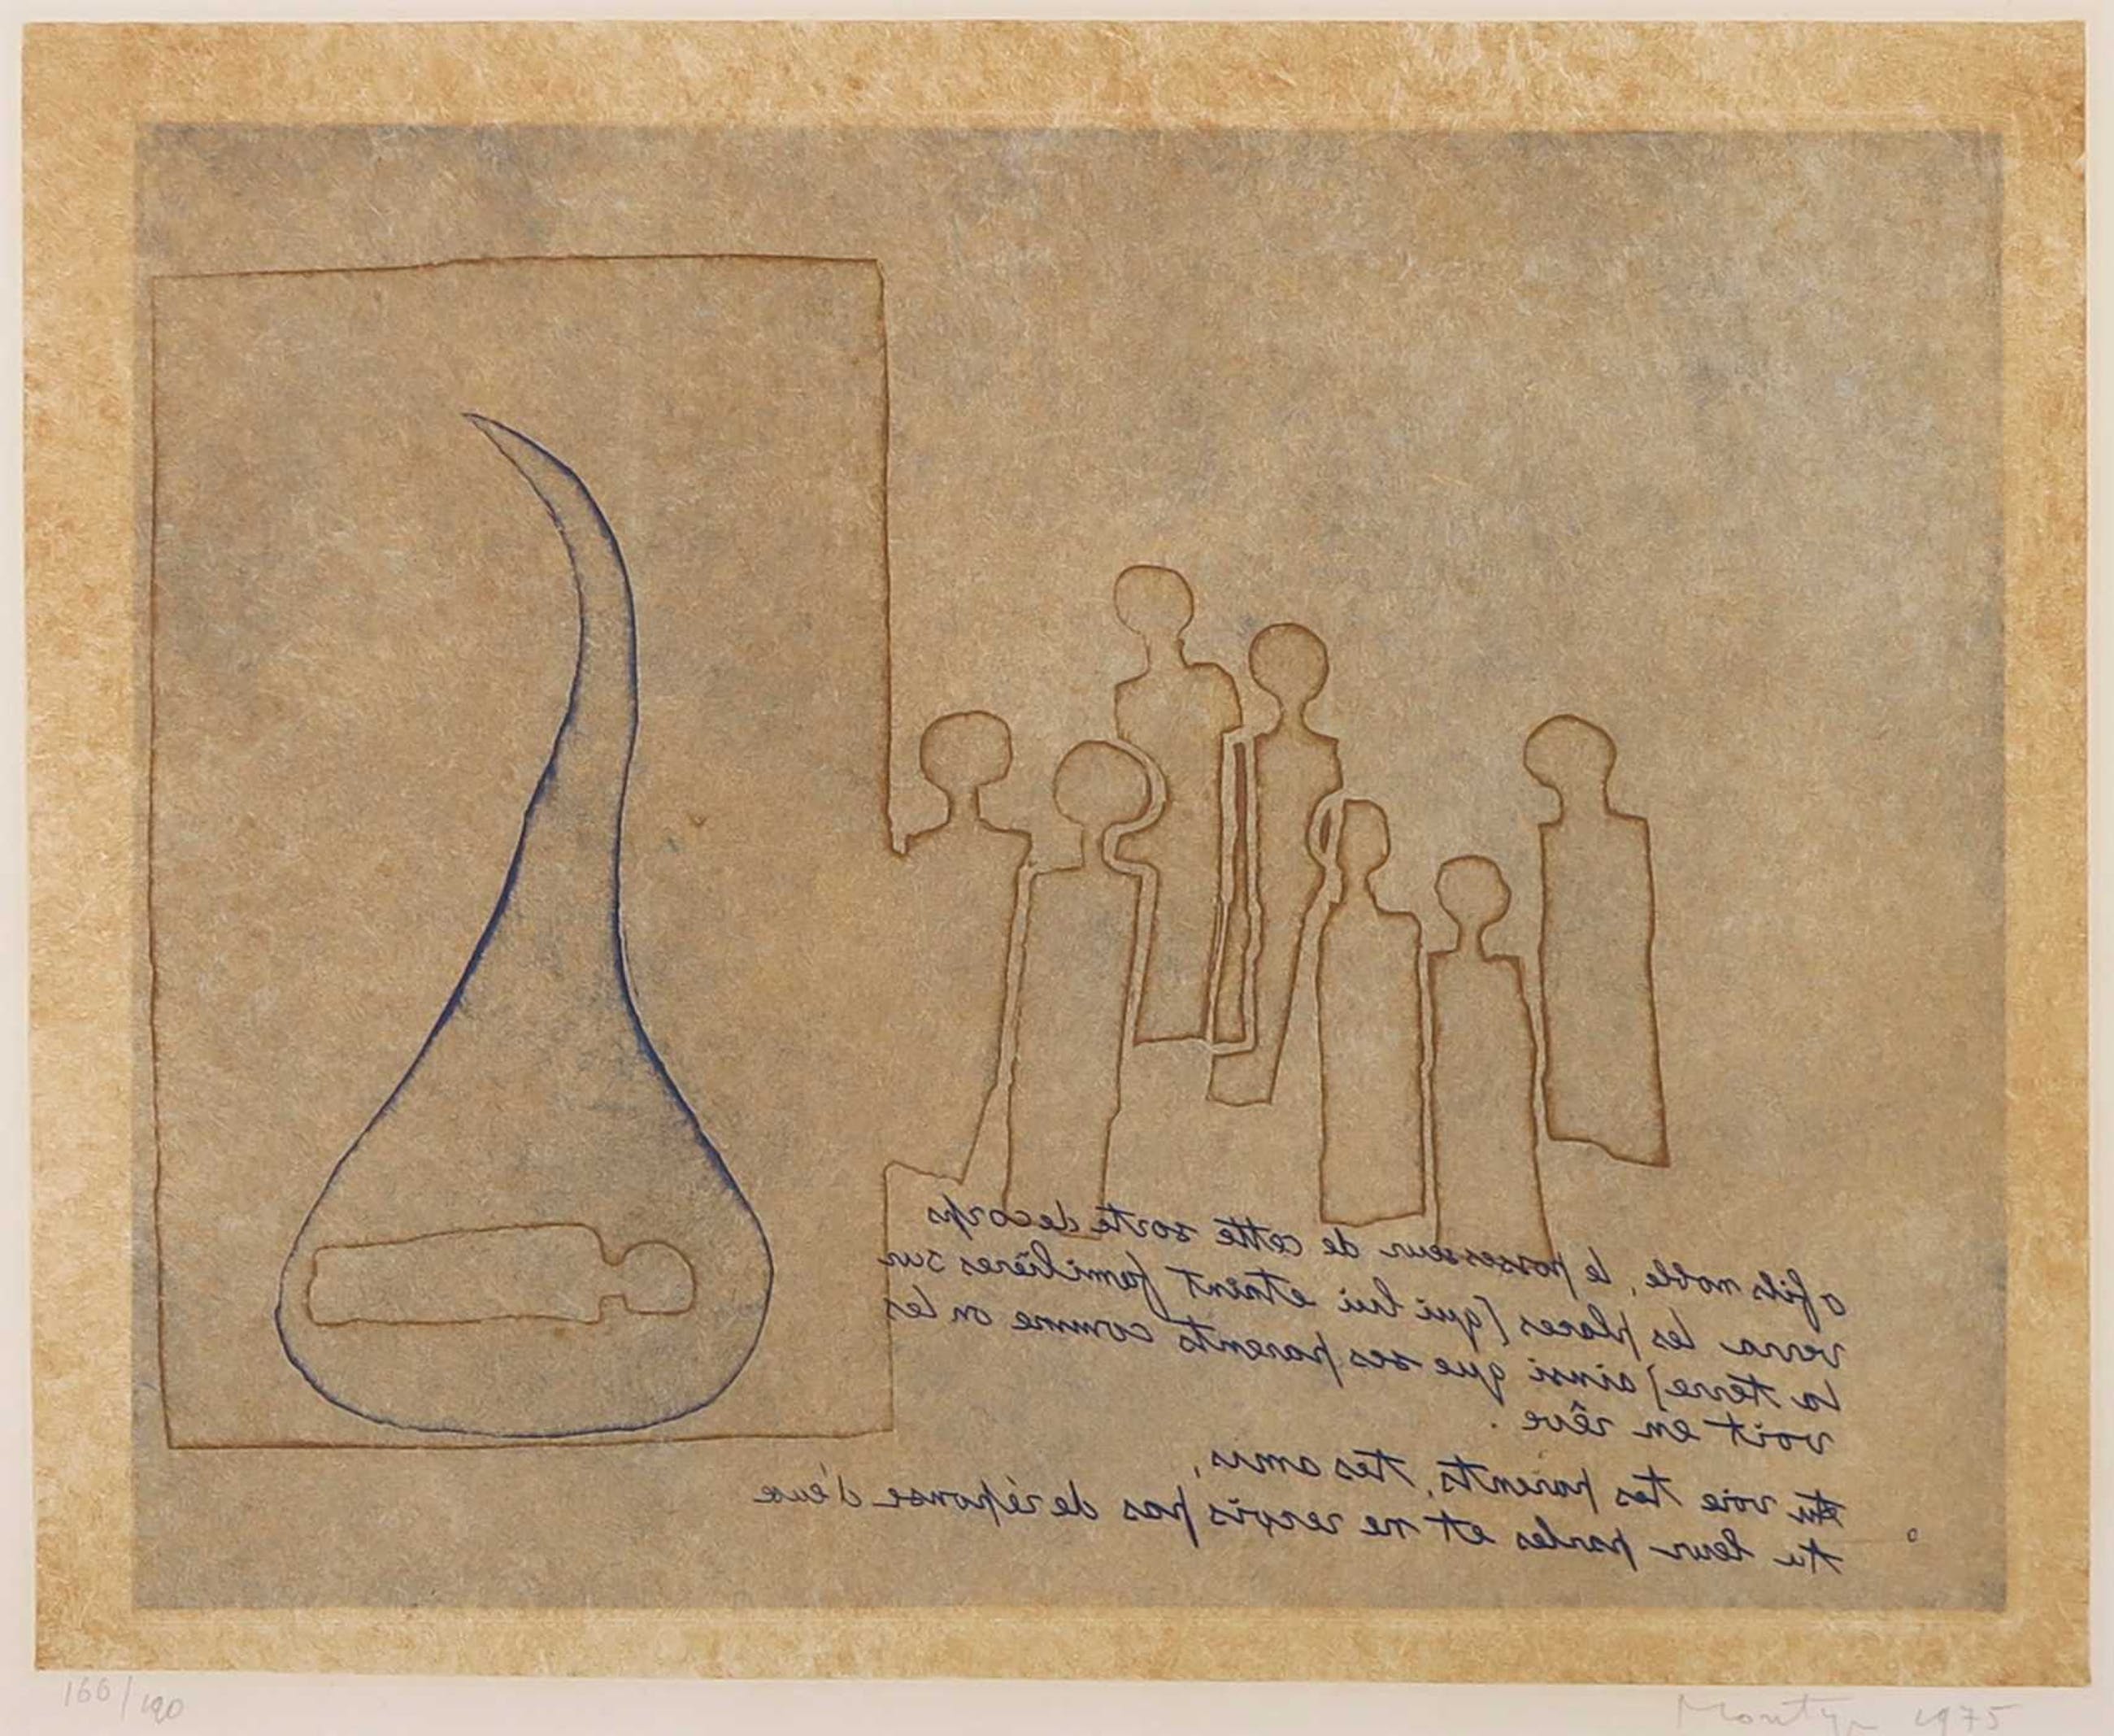 o fils noble, le possesseur de cette sorte de corps
verra les places (qui lui etaint familières sur
la terre) ainsi que ses parents comme on les
voit en rêve.
tu voie tes parents, tes amis,
tu leur parles et ne reçois pas de réponse d'eux
166/190
1975